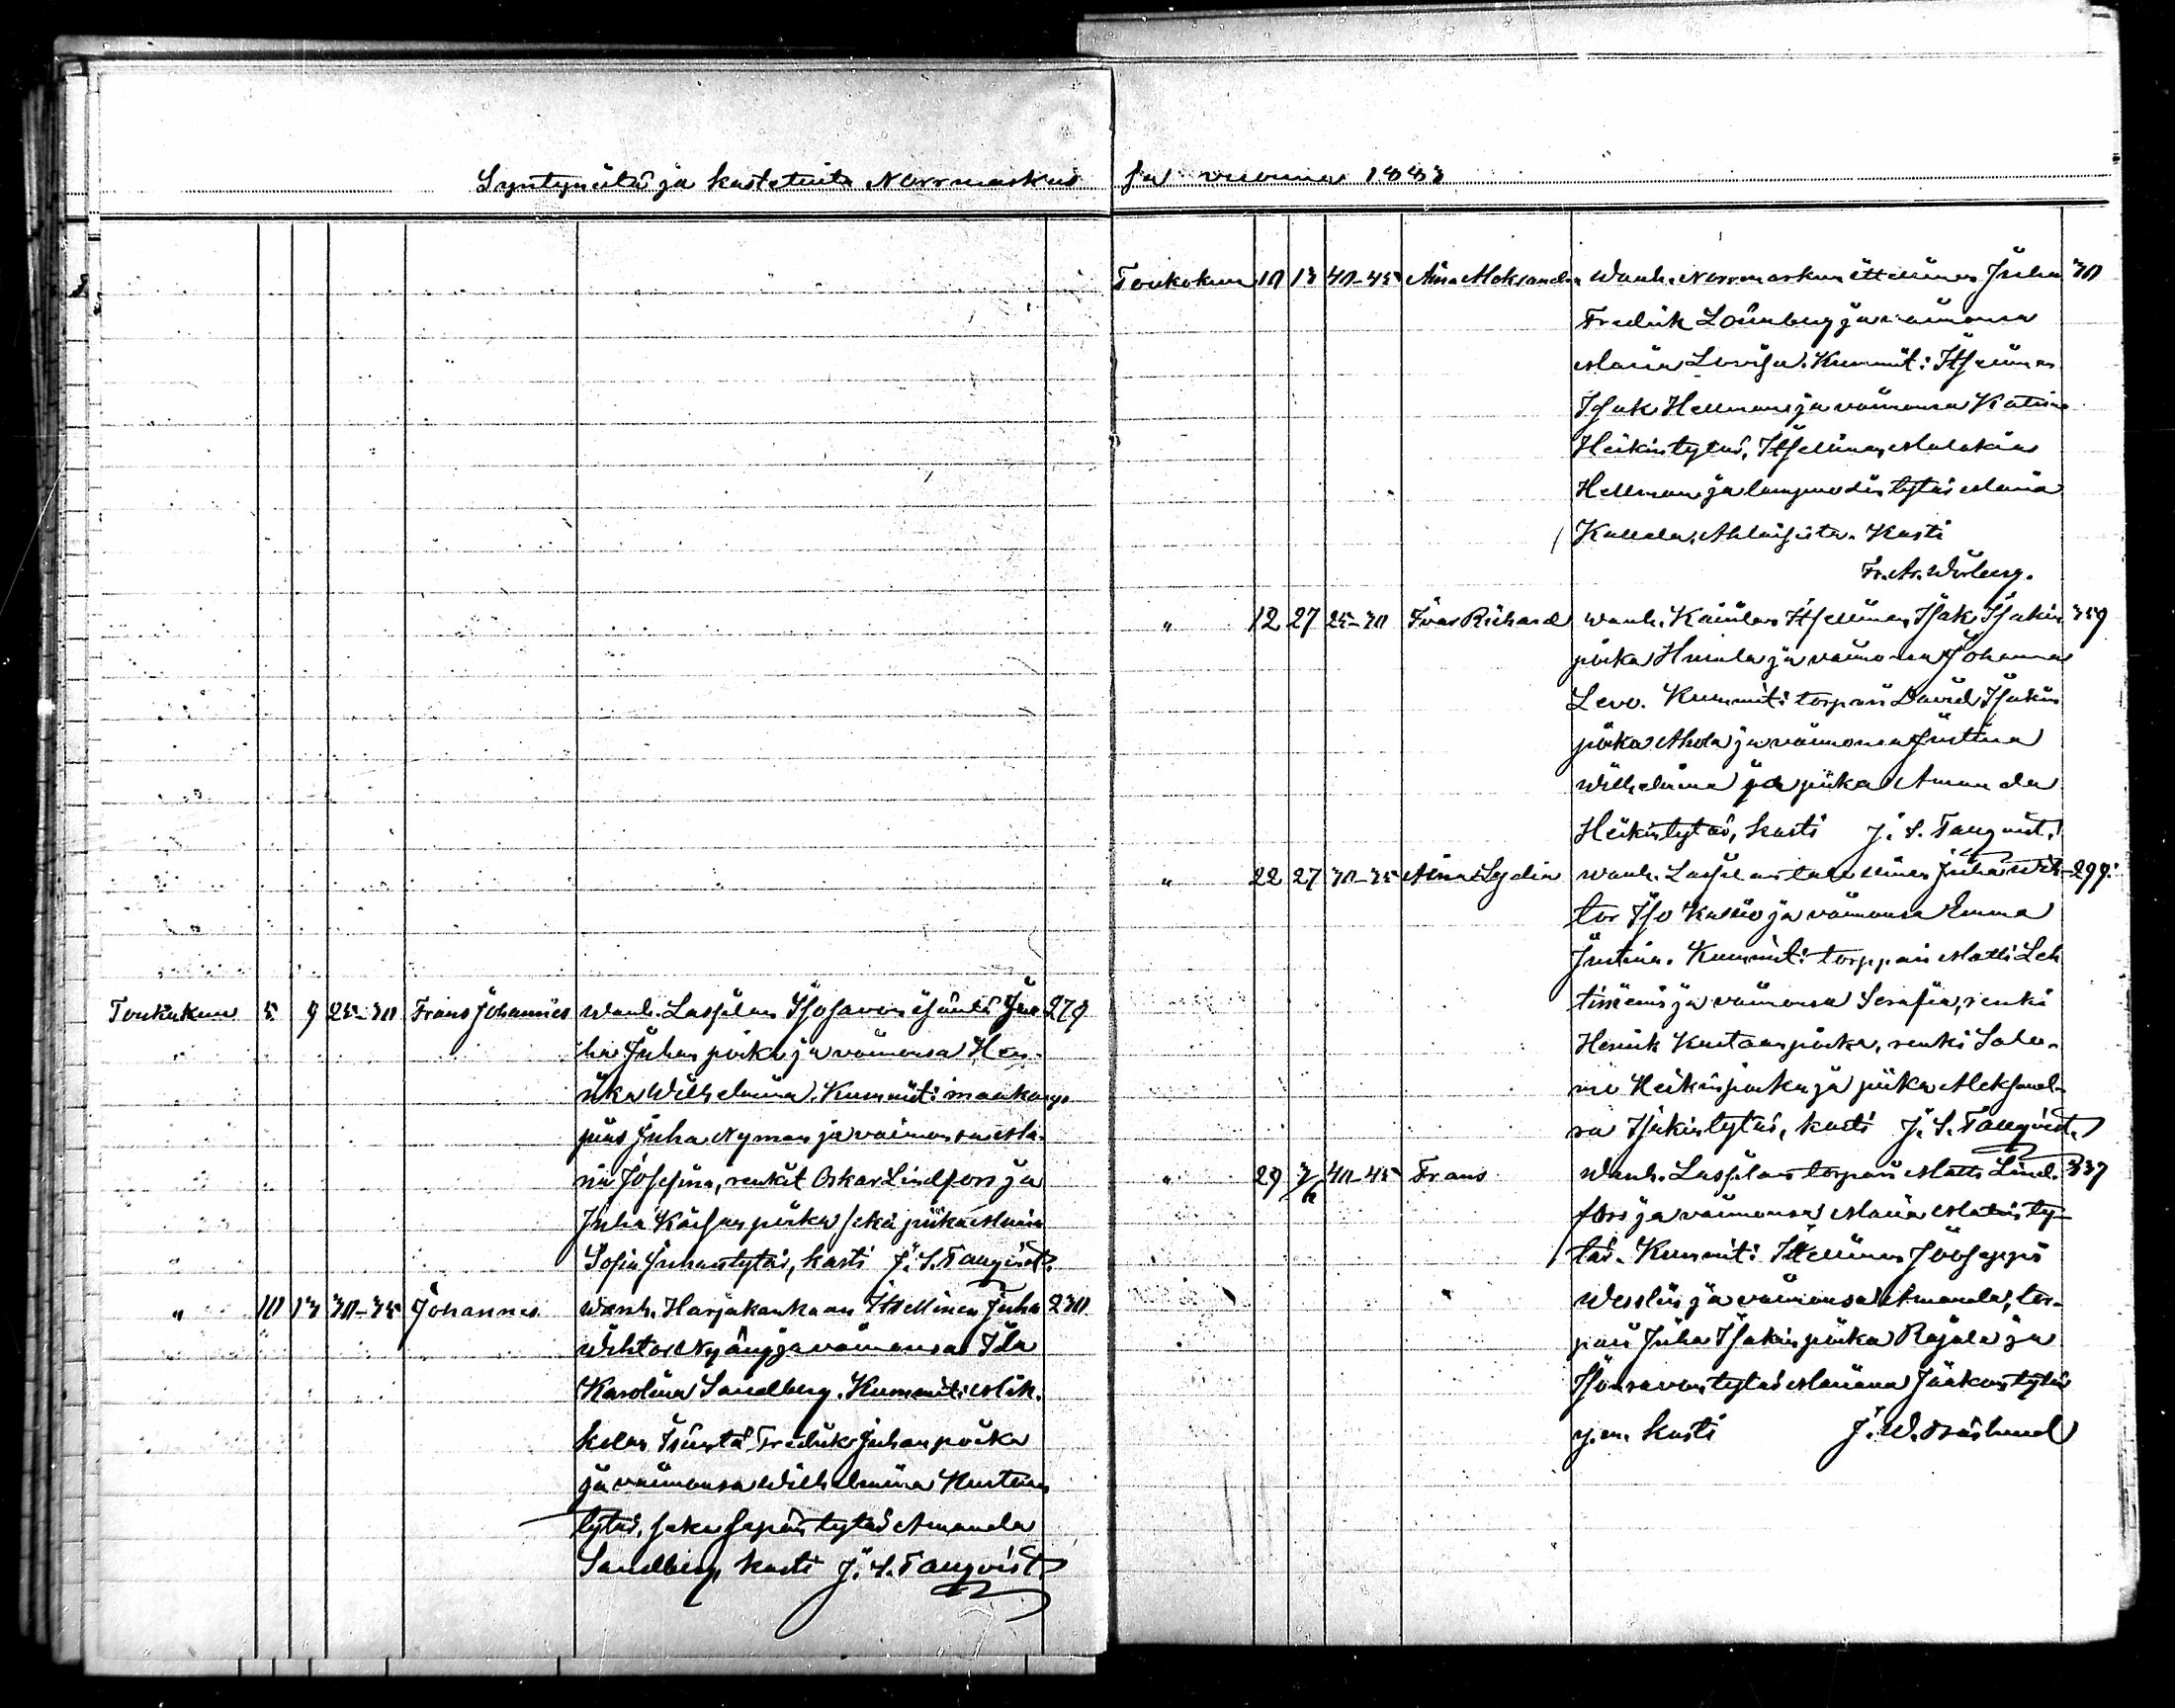 Syntyneitä ja kastetuita Norrmarkussa vuonna 1883
Toukokuu 5 9 25-30 Frans Johannes Wanh. Lassilan Isosavon isäntä Ju- 279
ha Juhan poika ja vaimonsa Hen-
rika Wilhelmina. Kummit: maakaup-
pias Juha Nyman ja vaimonsa Ma-
ria Josefina, rengit Oskar Lindfors ja
Juha Kaisan poika sekä piika Maria
Sofia Juhantytär, kasti J. S. Tanqvist.
" 10 13 30-35 Johannes Wanh. Harjakankaan Itsellinen Juha 230
Wihtor Nyäng ja vaimonsa Ida
Karolina Sandberg. Kummit: Mik-
kolan Isäntä Fredrik Juhanpoika
ja vaimonsa Wilhelmina Kustaan
tytär, seka sepän tytär Amanda
Sandberg, kasti J. S. Tanqvist.
Toukokuu 10 13 40-45 Aina Aleksandra Wanh. Norrmarkun itsellinen Juha 30
Fredrik Lönnberg ja vaimonsa
Maria Lovisa. Kummit: Itsellinen
Isak Hellman ja vaimonsa Katrina
Heikintytär, Itsellinen Malakias
Hellman ja lampuodin tytär Maria
Ahlaisista. Kasti
Fr. A.
" 12 27 25-30 Ivar Richard Wanh. Itsellinen Isak Isakin 359
poika ja vaimonsa Johanna
Levo. Kummit: torpari David Isakin
poika Ahola ja vaimonsa Justina
Wilhelmina ja piika Amanda
Heikintytär, kasti J. S. Tanqvist.
" 22 27 30-35 Aina Lydia Wanh. Lassilan talollinen Juha Wih- 299
tor Iso ja vaimonsa Emma
Justina. Kummit: torppari Matti Leh
tinen ja vaimonsa Serafia, renki
Henrik Kustaanpoika, renki Salo-
mo Heikinpoika ja piika Aleksand-
ra Isakintytär, kasti J. S. Tanqvist.
" 29 3/6 40-45 Frans Wanh. Lassilan torpari Matti Lind- 337
fors ja vaimonsa Maria Matintytär-
tär. Kummit: Itsellinen Jooseppi
Wesslin ja vaimonsa Amanda, tor-
pari Juha Isakinpoika Rajala ja
Isosavon tytär Mariana Jaakontytär
y.m. kasti J. W.